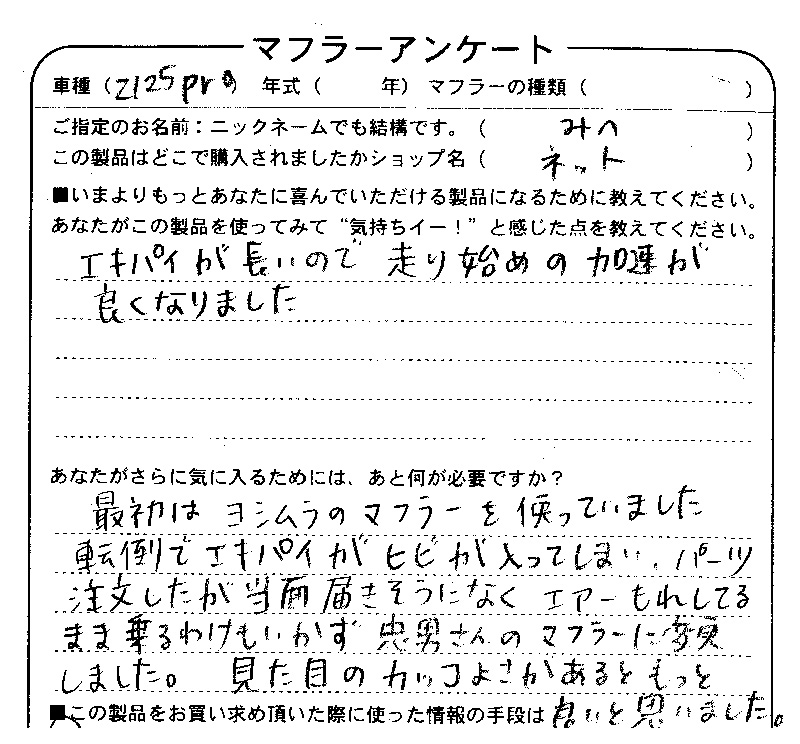 マフラーアンケート
車種（Z125pro） 年式（ 年） マフラーの種類（ ）
ご指定のお名前：ニックネームでも結構です。（ みへ ）
この製品はどこで購入されましたかショップ名（ ネット ）
■いまよりもっとあなたに喜んでいただける製品になるために教えてください。
あなたがこの製品を使ってみて“気持ちイー！”と感じた点を教えてください。
エキパイが長いので 走り始めの加速が
良くなりました
あなたがさらに気に入るためには、あと何が必要ですか？
最初は ヨシムラのマフラーを使っていました
転倒でエキパイがヒビが入ってしまい、パーツ
注文したが当面届きそうになく エアーもれしてる
まま乗るわけもいかず 忠男さんのマフラーに変更
しました。 見た目のカッコよさがあるともっと
良いと思いました。
■この製品をお買い求め頂いた際に使った情報の手段は